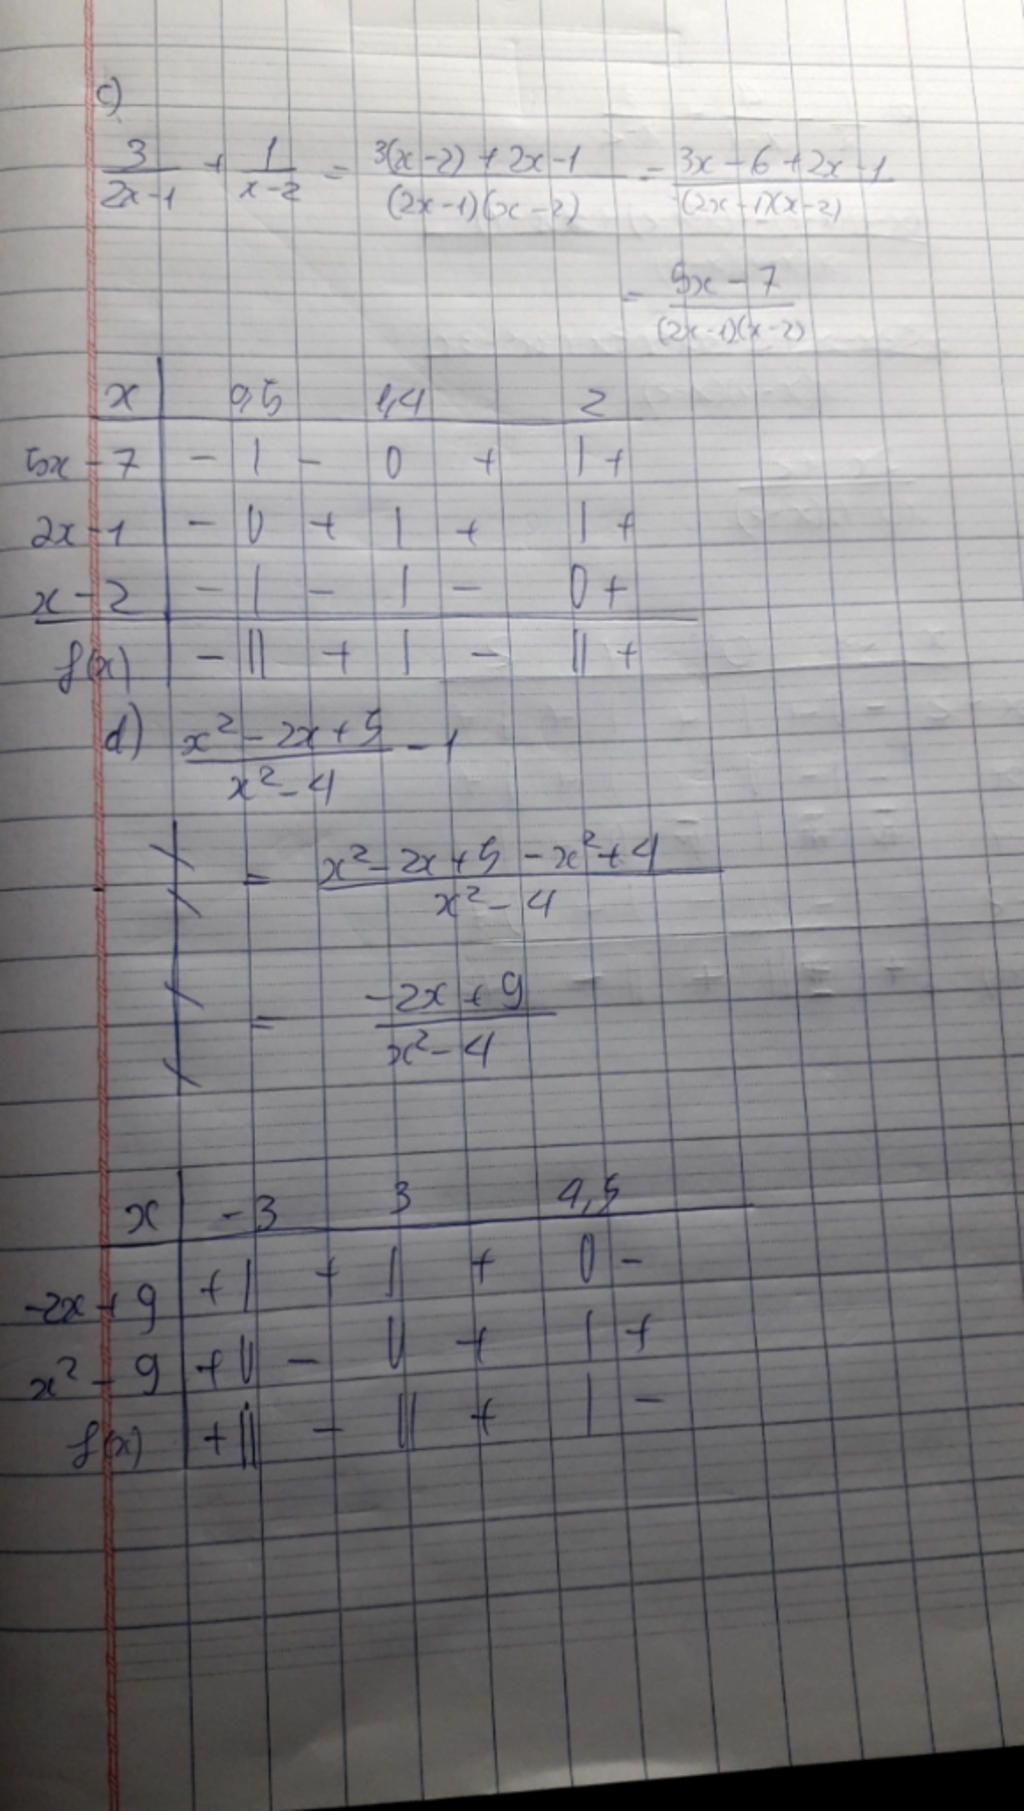 c)
3/(2x-1) + 1/(x-2) = (3(x-2) + 2x-1)/((2x-1)(x-2)) = (3x-6+2x-1)/((2x-1)(x-2))
= (5x-7)/((2x-1)(x-2))
x | 0,5 1,4 2
5x-7 | - | - 0 + | +
2x-1 | - 0 + | + | +
x-2 | - | - | - 0 +
f(x) | - || + | - || +
d) (x²-2x+5)/(x²-4) - 1
= (x²-2x+5-x²+4)/(x²-4)
= (-2x+9)/(x²-4)
x | -3 3 4,5
-2x+9 | + | + | + 0 -
x²-9 | + 0 - 0 + | +
f(x) | + || - || + | -